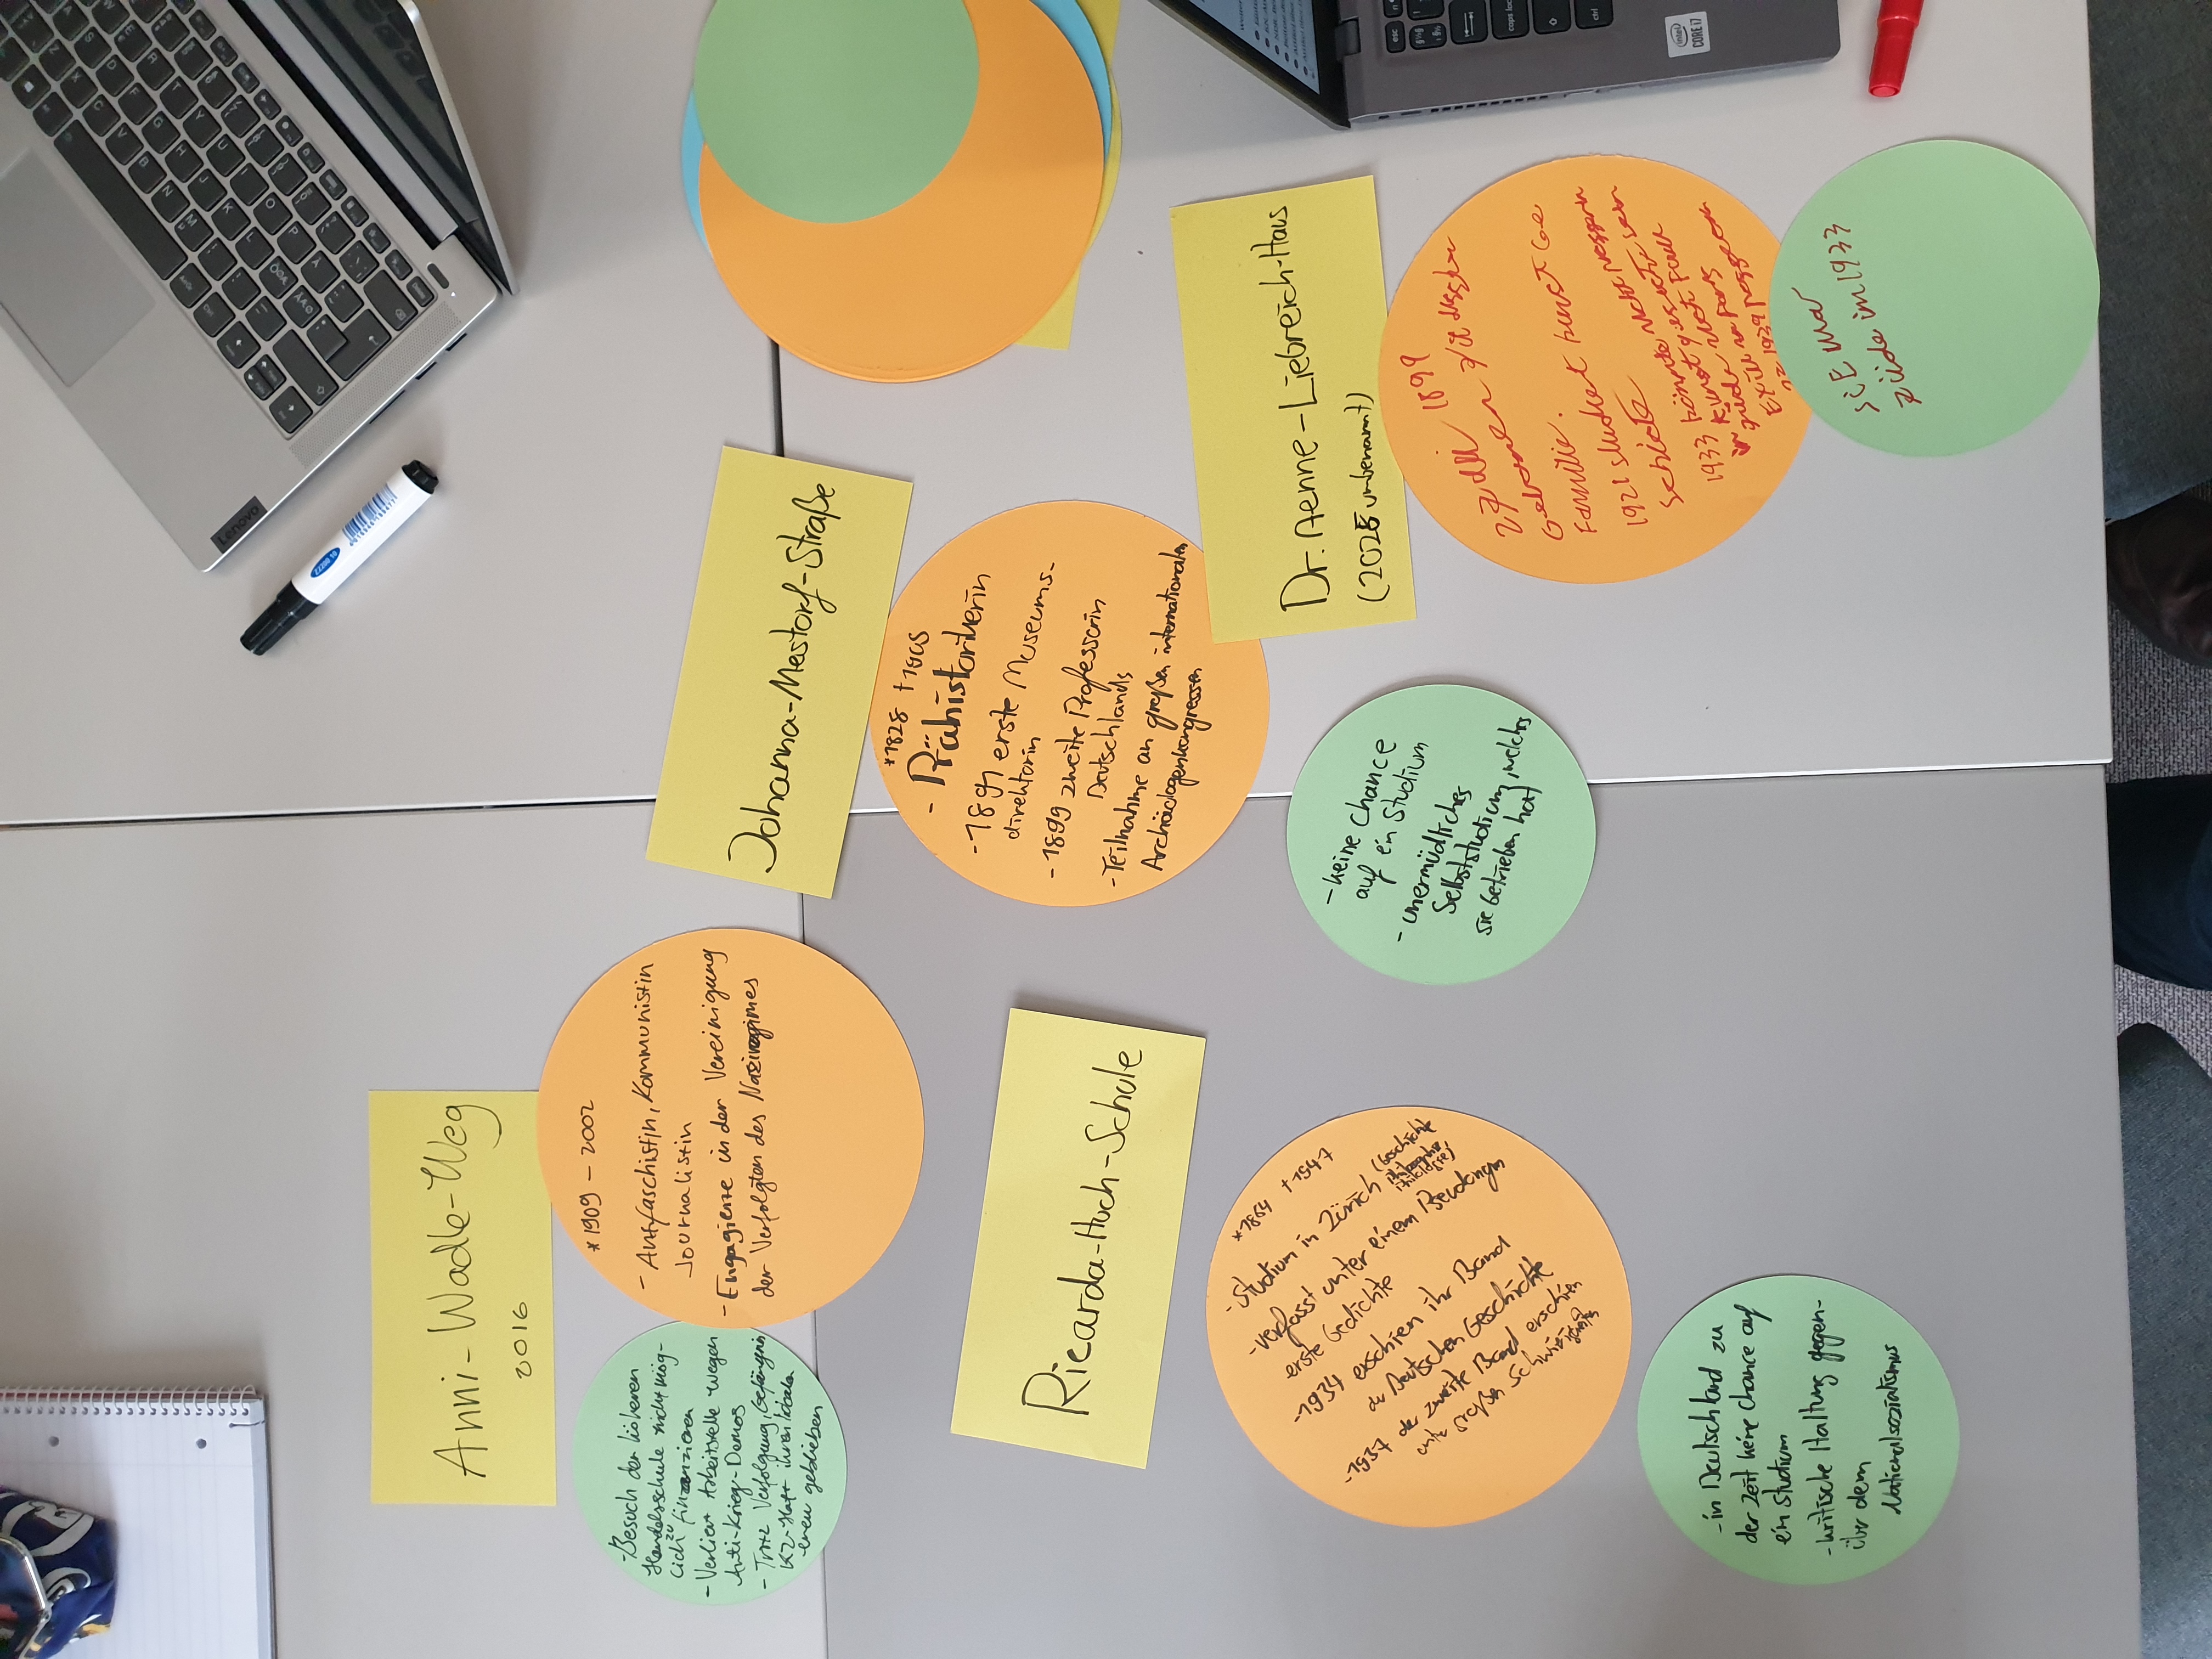 Anni-Wadle-Weg
2016
-Besuch der höheren
Handelsschule nicht mög-
lich zu finanzieren
- Verliert Arbeitstelle wegen
Anti-Krieg-Demos
- Trotz Verfolgung, Gefängnis
KZ-Haft ihren Idealen
treu geblieben
*1909 - 2002
- Antifaschistin, Kommunistin
Journalistin
- Engagierte in der Vereinigung
der Verfolgten des Naziregimes
Johanna-Mestorf-Straße
*1828 †1905
- Prähistorikerin
-1891 erste Museums-
direktorin
- 1899 zweite Professorin
Deutschlands
-Teilnahme an großen internationalen
Archäologenkongressen
- keine Chance
auf ein Studium
- unermüdliches
Selbststudium, welches
sie betrieben hat
Ricarda-Huch-Schule
*1864 †1947
-Studium in Zürich (Geschichte
Philosophie,
Philologie)
-verfasst unter einem Pseudonym
erste Gedichte
-1934 erschien ihr Band
der Deutschen Geschichte
-1937 der zweite Band erschien
unter großen Schwierigkeiten
-in Deutschland zu
der Zeit keine Chance auf
ein Studium
-kritische Haltung gegen-
über dem
Nationalsozialismus
Dr. Aenne-Liebreich-Haus
(2025 umbenannt)
1899
Geboren
Familie.
1921 studiert kunst Ge
schicte
1933 könnte nicht
in kunst
Exill
1939
siE war
züde im 1933
Lenovo
intel
CORE i7
esc
caps lock
ctrl